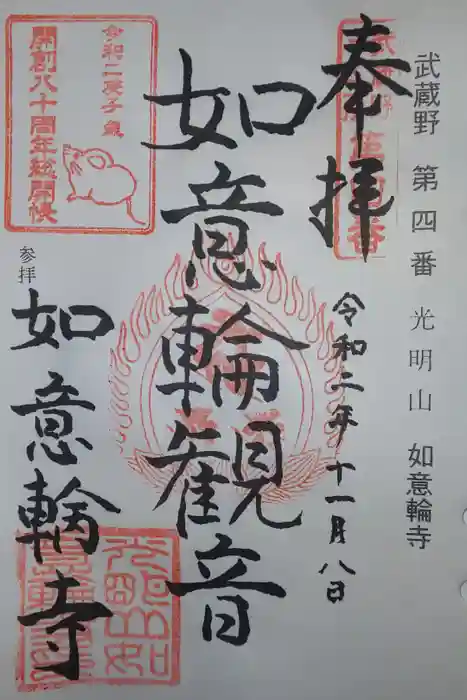 武蔵野 第四番 光明山 如意輪寺
奉拝
令和二年十一月八日
如意輪観音
令和二庚子歳
開創八十周年総開帳
参拝
如意輪寺